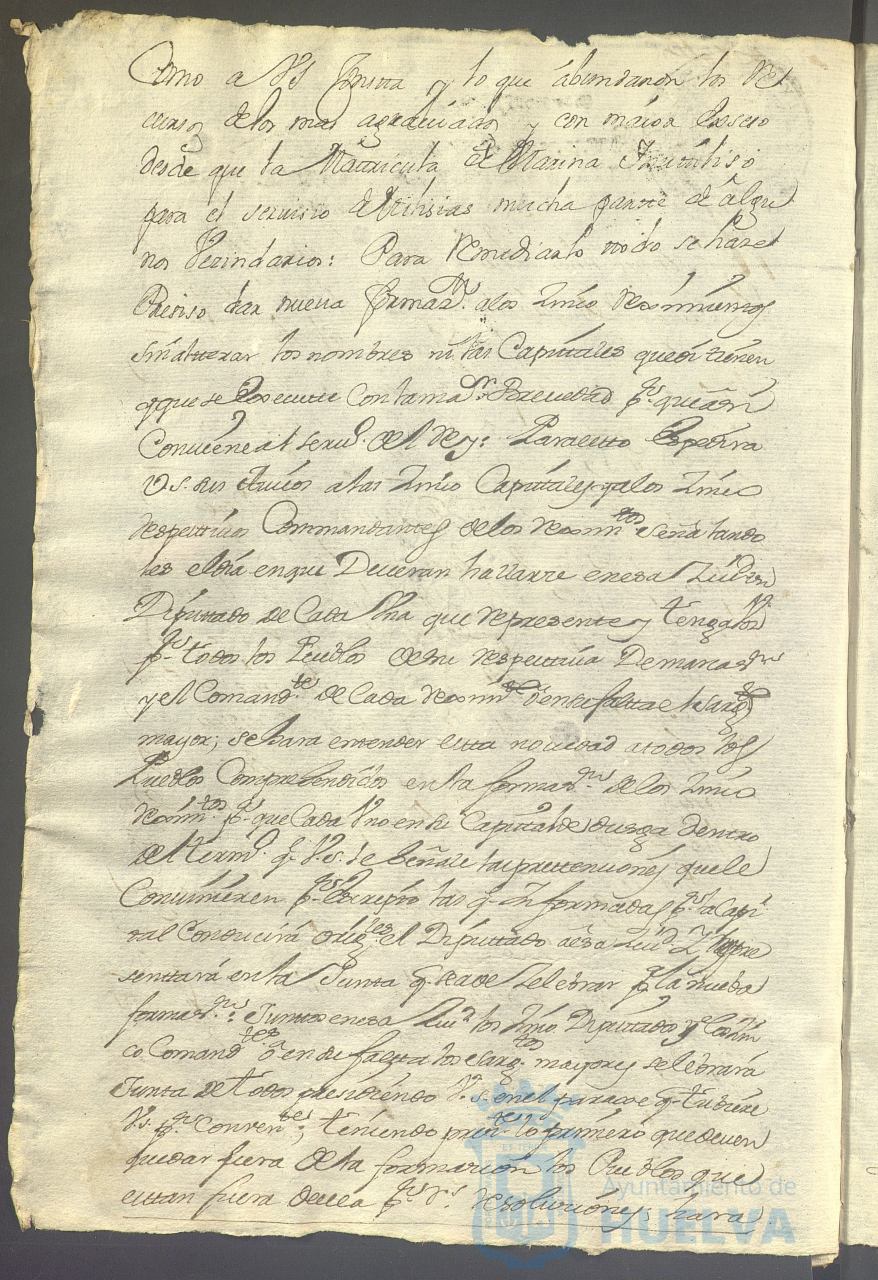 Como a VS Consta y lo que abundaron los Re
cursos delos mas agraviados y con maior Exseso
desde que la Matricula de Marina Inutiliso
para el servisio de Milisias mucha parte de algu
nos Vezindarios: Para Remediarlo todo se haze
Presiso dar nueva formaz.on alos Zinco Reximientos
sin alterar los nombres ni las Capitales que oi tienen
y que se Execute con la ma.or Brevedad p.r que asi
Conviene al serv.o del Rey: Para esto Expedira
VS. sus Avisos a las Zinco Capitales y alos Zinco
Respectivos Commandantes delos Reximi.tos señalando
les el dia en que Deveran hallarse en esa Ziud. un
Diputado de Cada Una que represente y tenga
p.r todos los Pueblos de su respectiva Demarcaz.on
y el Comand.te de Cada Reximi.to o en su falta el Sarg.to
mayor; se hara entender esta novedad atodos los
Pueblos Comprehendidos en la formaz.on delos Zinco
Reximi.tos p.a que Cada Uno en su Capital deduzga dentro
del term.o q. V.S. le señale las prettensiones que le
Conviniesen p.r Escripto las q. Informadas p.r la Capi
tal Conducirá orig.les el Diputado a esa Ziud. Y Repre
sentará en la Junta q. se a de Zelebrar p.a la nueba
formaz.on: Juntos en esa Ziu.d los Zinco Diputados y Zin
co Comand.tes o en su falta los Sarg.tos mayores se lebrará
Junta de todos presidiendo V.S. en el paraxe q. tubiere
V.S. p.r Conven.te; teniendo pres.te lo primero que deven
quedar fuera de la formacion los Pueblos que
estan fuera de ella p.r R.s Resoluciones: hara
Ayuntamiento de
HUELVA